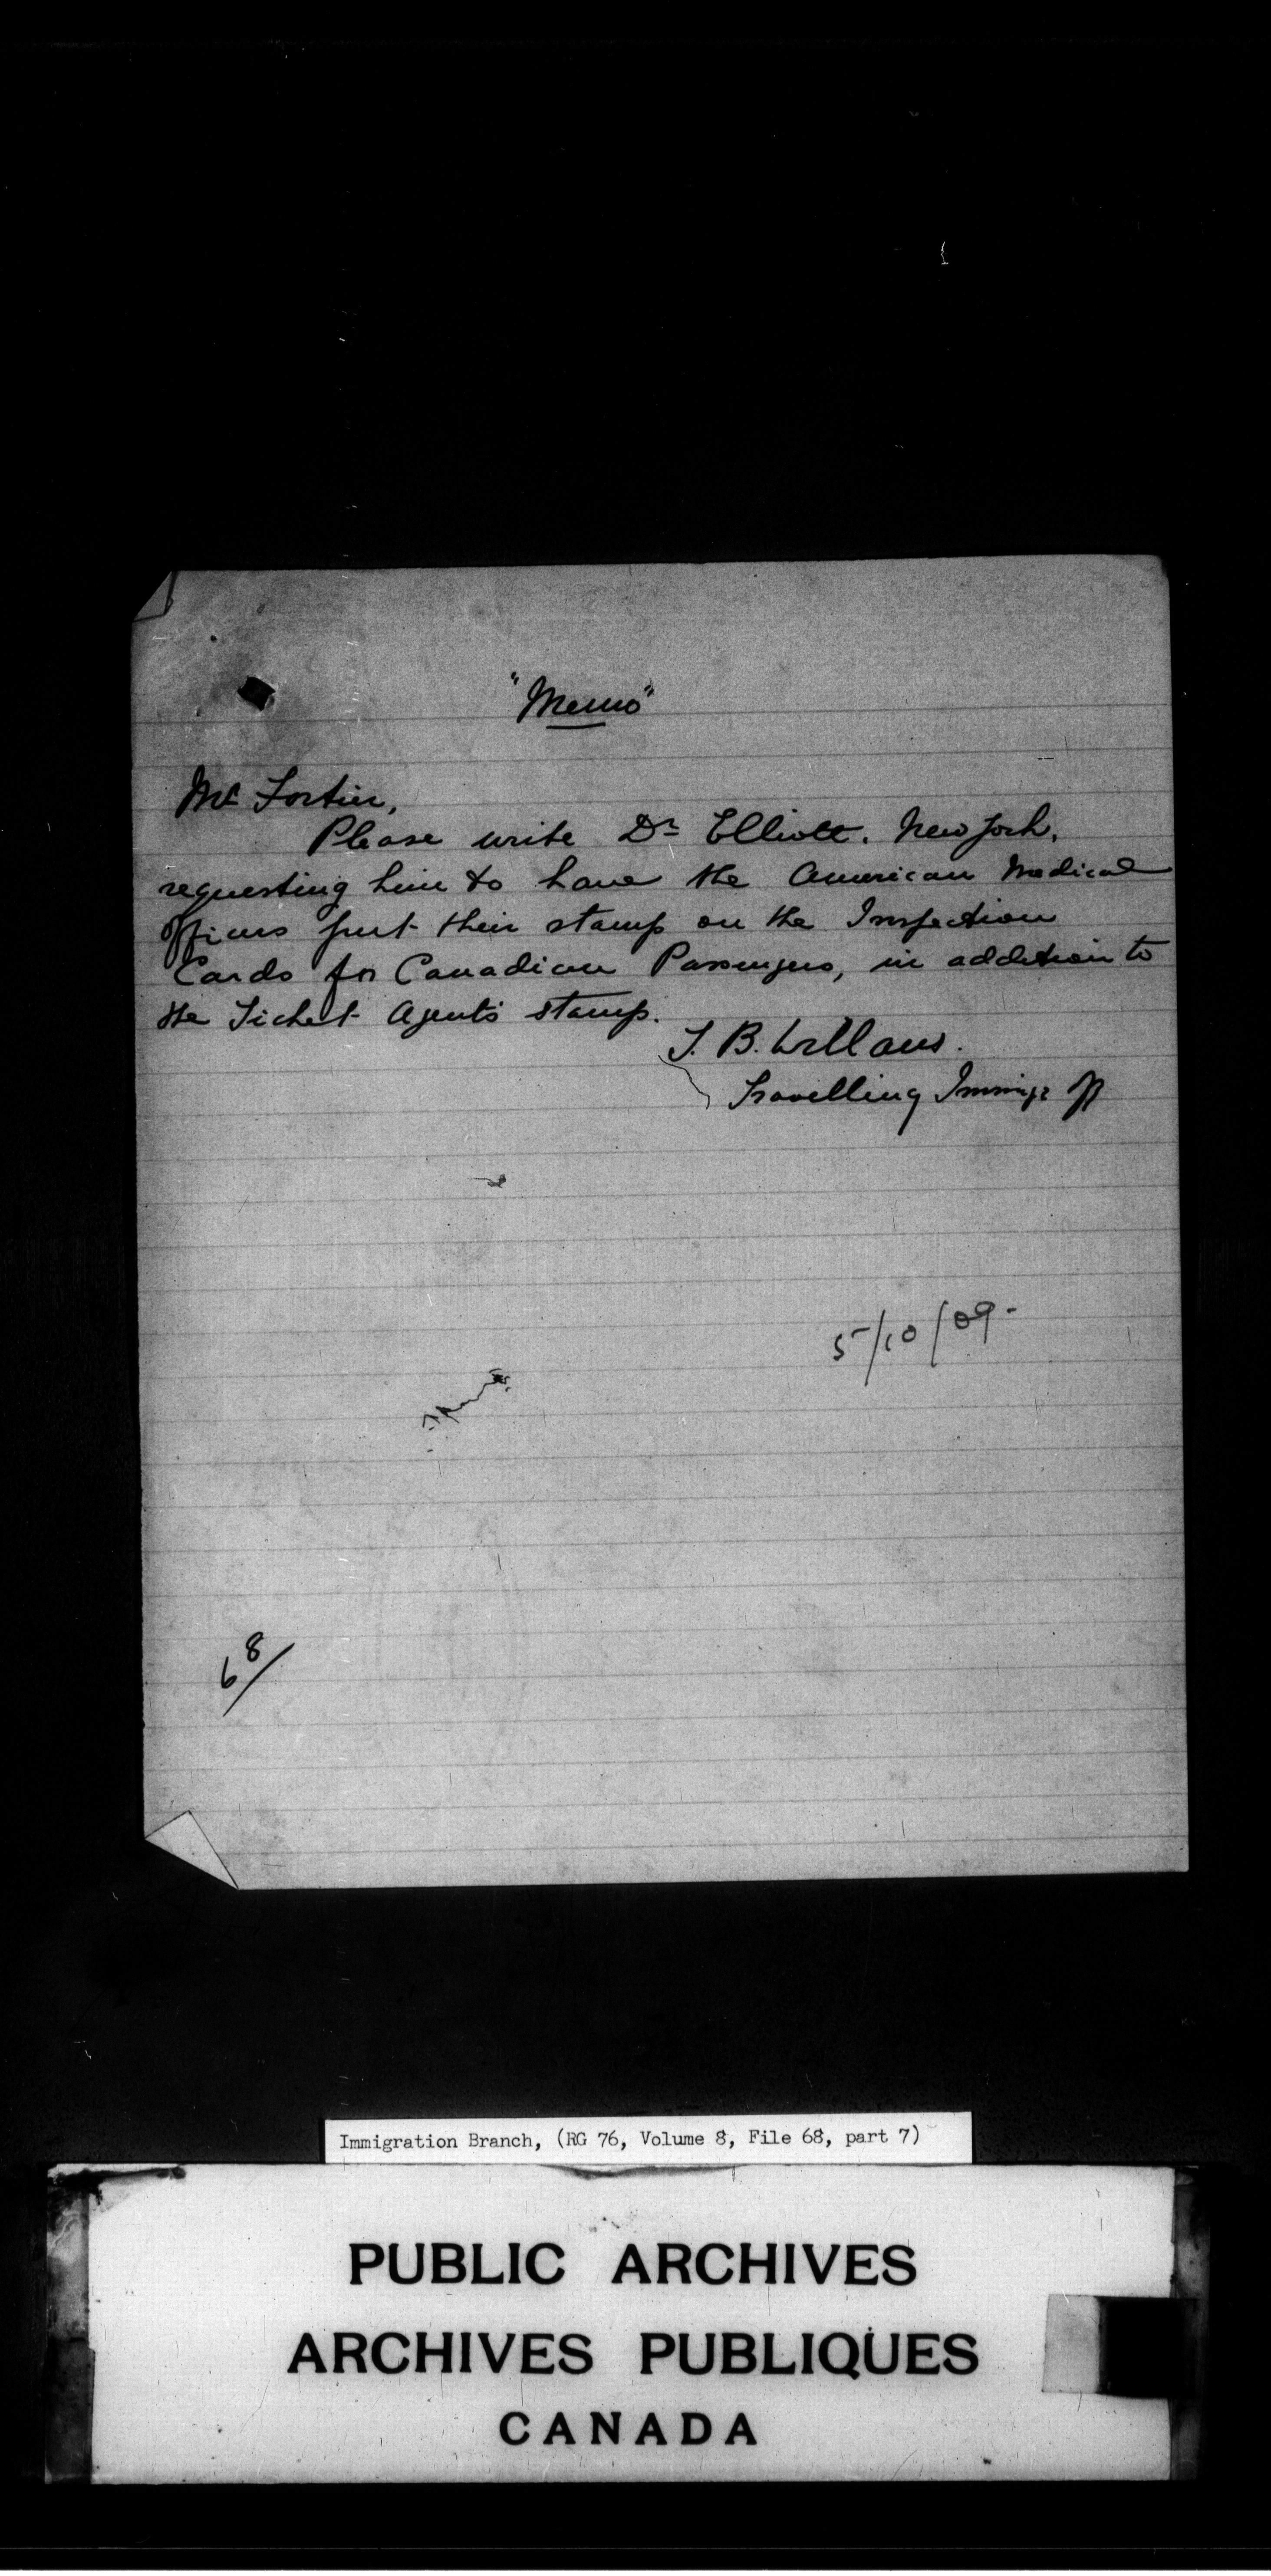 "Memo"
Mr Fortier,
Please write Dr Elliott. New York,
requesting him to have the American Medical
Officers put their stamp on the Inspection
Cards for Canadian Passengers, in addition to
the Ticket Agents stamp.
T. B. Willans.
Travelling Immigr Off
5/10/09-
68/
Immigration Branch, (RG 76, Volume 8, File 68, part 7)
PUBLIC ARCHIVES
ARCHIVES PUBLIQUES
CANADA